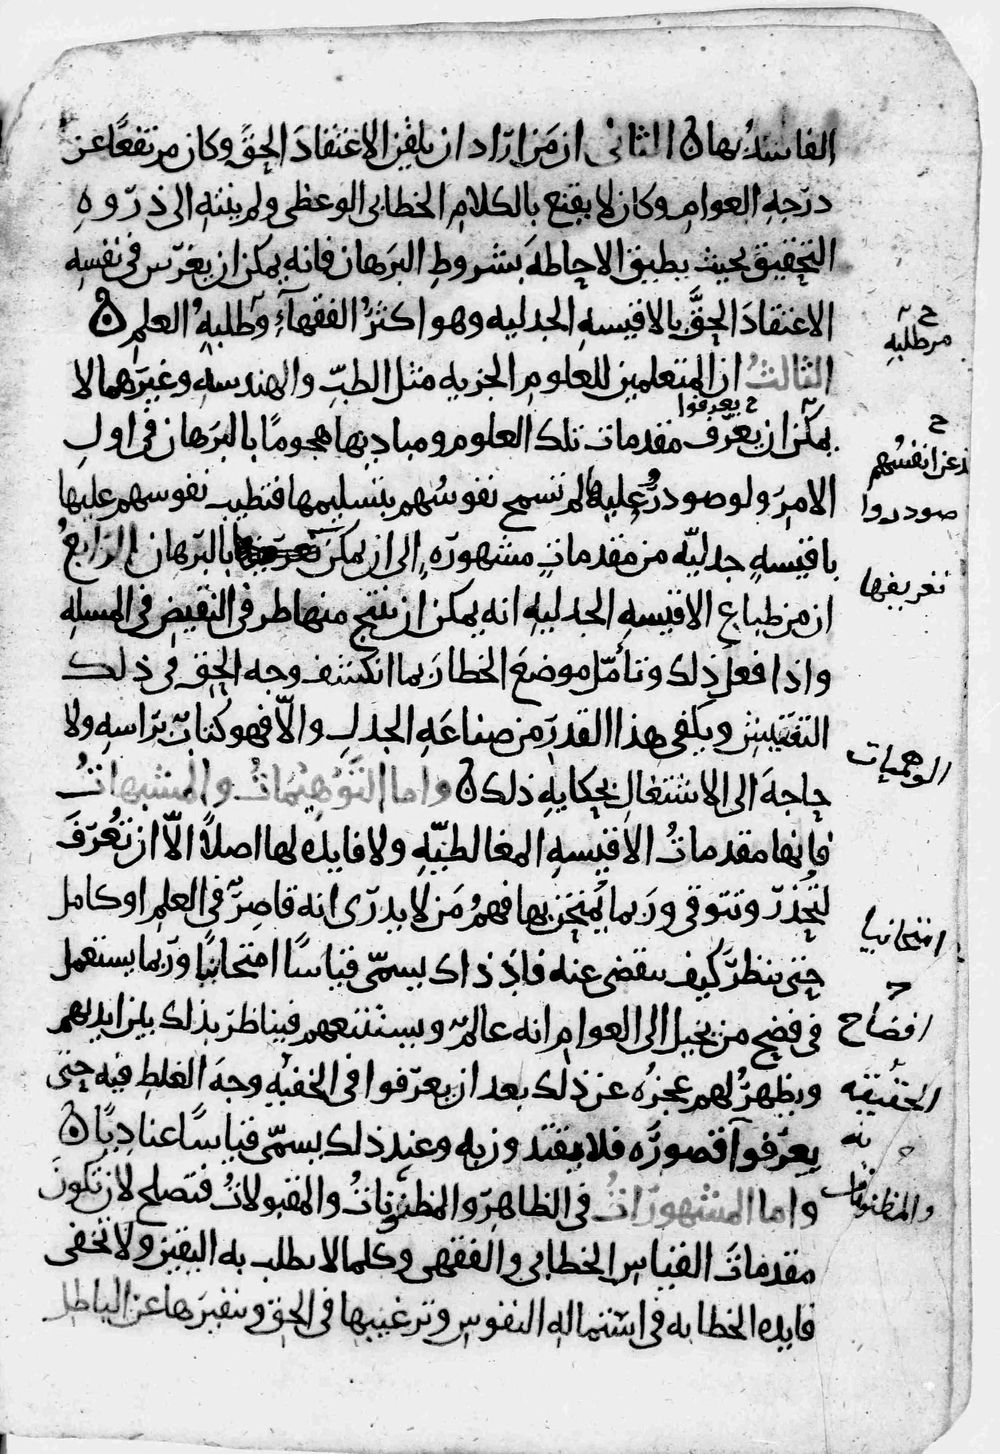 الفاسد بها ن الثاني ان من اراد ان يلقن الاعتقاد الحق وكان مرتفعا عن
درجه العوام وكان لا يقنع بالكلام الخطابى الوعظى ولم ينته الى ذروه
التحقيق بحيث يطيق الاحاطه بشروط البرهان فانه يمكن ان يغرس فى نفسه
الاعتقاد الحق بالاقيسه الجدليه وهو اكثر الفقهاء وطلبه العلم ن
من طلبه
الثالث ان المتعلمين للعلوم الجزيه مثل الطب والهندسه وغيرهما لا
يعرفوا
يمكن ان يعرف مقدمات تلك العلوم ومباديها هجوما بالبرهان فى اول
تذعن انفسهم
الامر ولو صودر عليها لم تسمح نفوسهم بتسليمها فتطيب نفوسهم عليها
صودروا
باقيسه جدليه من مقدمات مشهوره الى ان يمكن بالبرهان الرابع
تعريفها
ان من طباع الاقيسه الجدليه انه يمكن ان ينتج منها طرفى النقيض فى المسله
واذا فعل ذلك وتامل موضع الخطا ربما انكشف وجه الحق فى ذلك
التفتيش ويكفى هذا القدر من صناعه الجدل والا فهو كتاب براسه ولا
الوهميات
حاجه الى الاشتغال بحكايه ذلك ن واما التوهيمات والمشبهات
فانها مقدمات الاقيسه المغالطيه ولا فايده لها اصلا الا ان تعرف
لتحذر وتتوقى وربما يمتحن بها فهم من لا يدرى انه قاصر فى العلم او كامل
امتحانيا
حتى ينظر كيف يتقضى عنه فاذ ذاك يسمى قياسا امتحانيا وربما يستعمل
فى فضح من يخيل الى العوام انه عالم ويستتبعهم فيناظر بذلك بين ايديهم
افضاح
ويظهر لهم عجزه عن ذلك بعد ان يعرفوا فى الخفيه وجه الغلط فيه حتى
الحقيقه
يعرفوا قصوره فلا يقتدون به وعند ذلك يسمى قياسا عناديا ن
به
واما المشهورات فى الظاهر والمظنونات والمقبولات فتصلح لان تكون
والمظنونات
مقدمات القياس الخطابى والفقهى وكلما لا يطلب به اليقين ولا تخفى
فايده الخطابه فى استماله النفوس وترغيبها فى الحق وتنفيرها عن الباطل